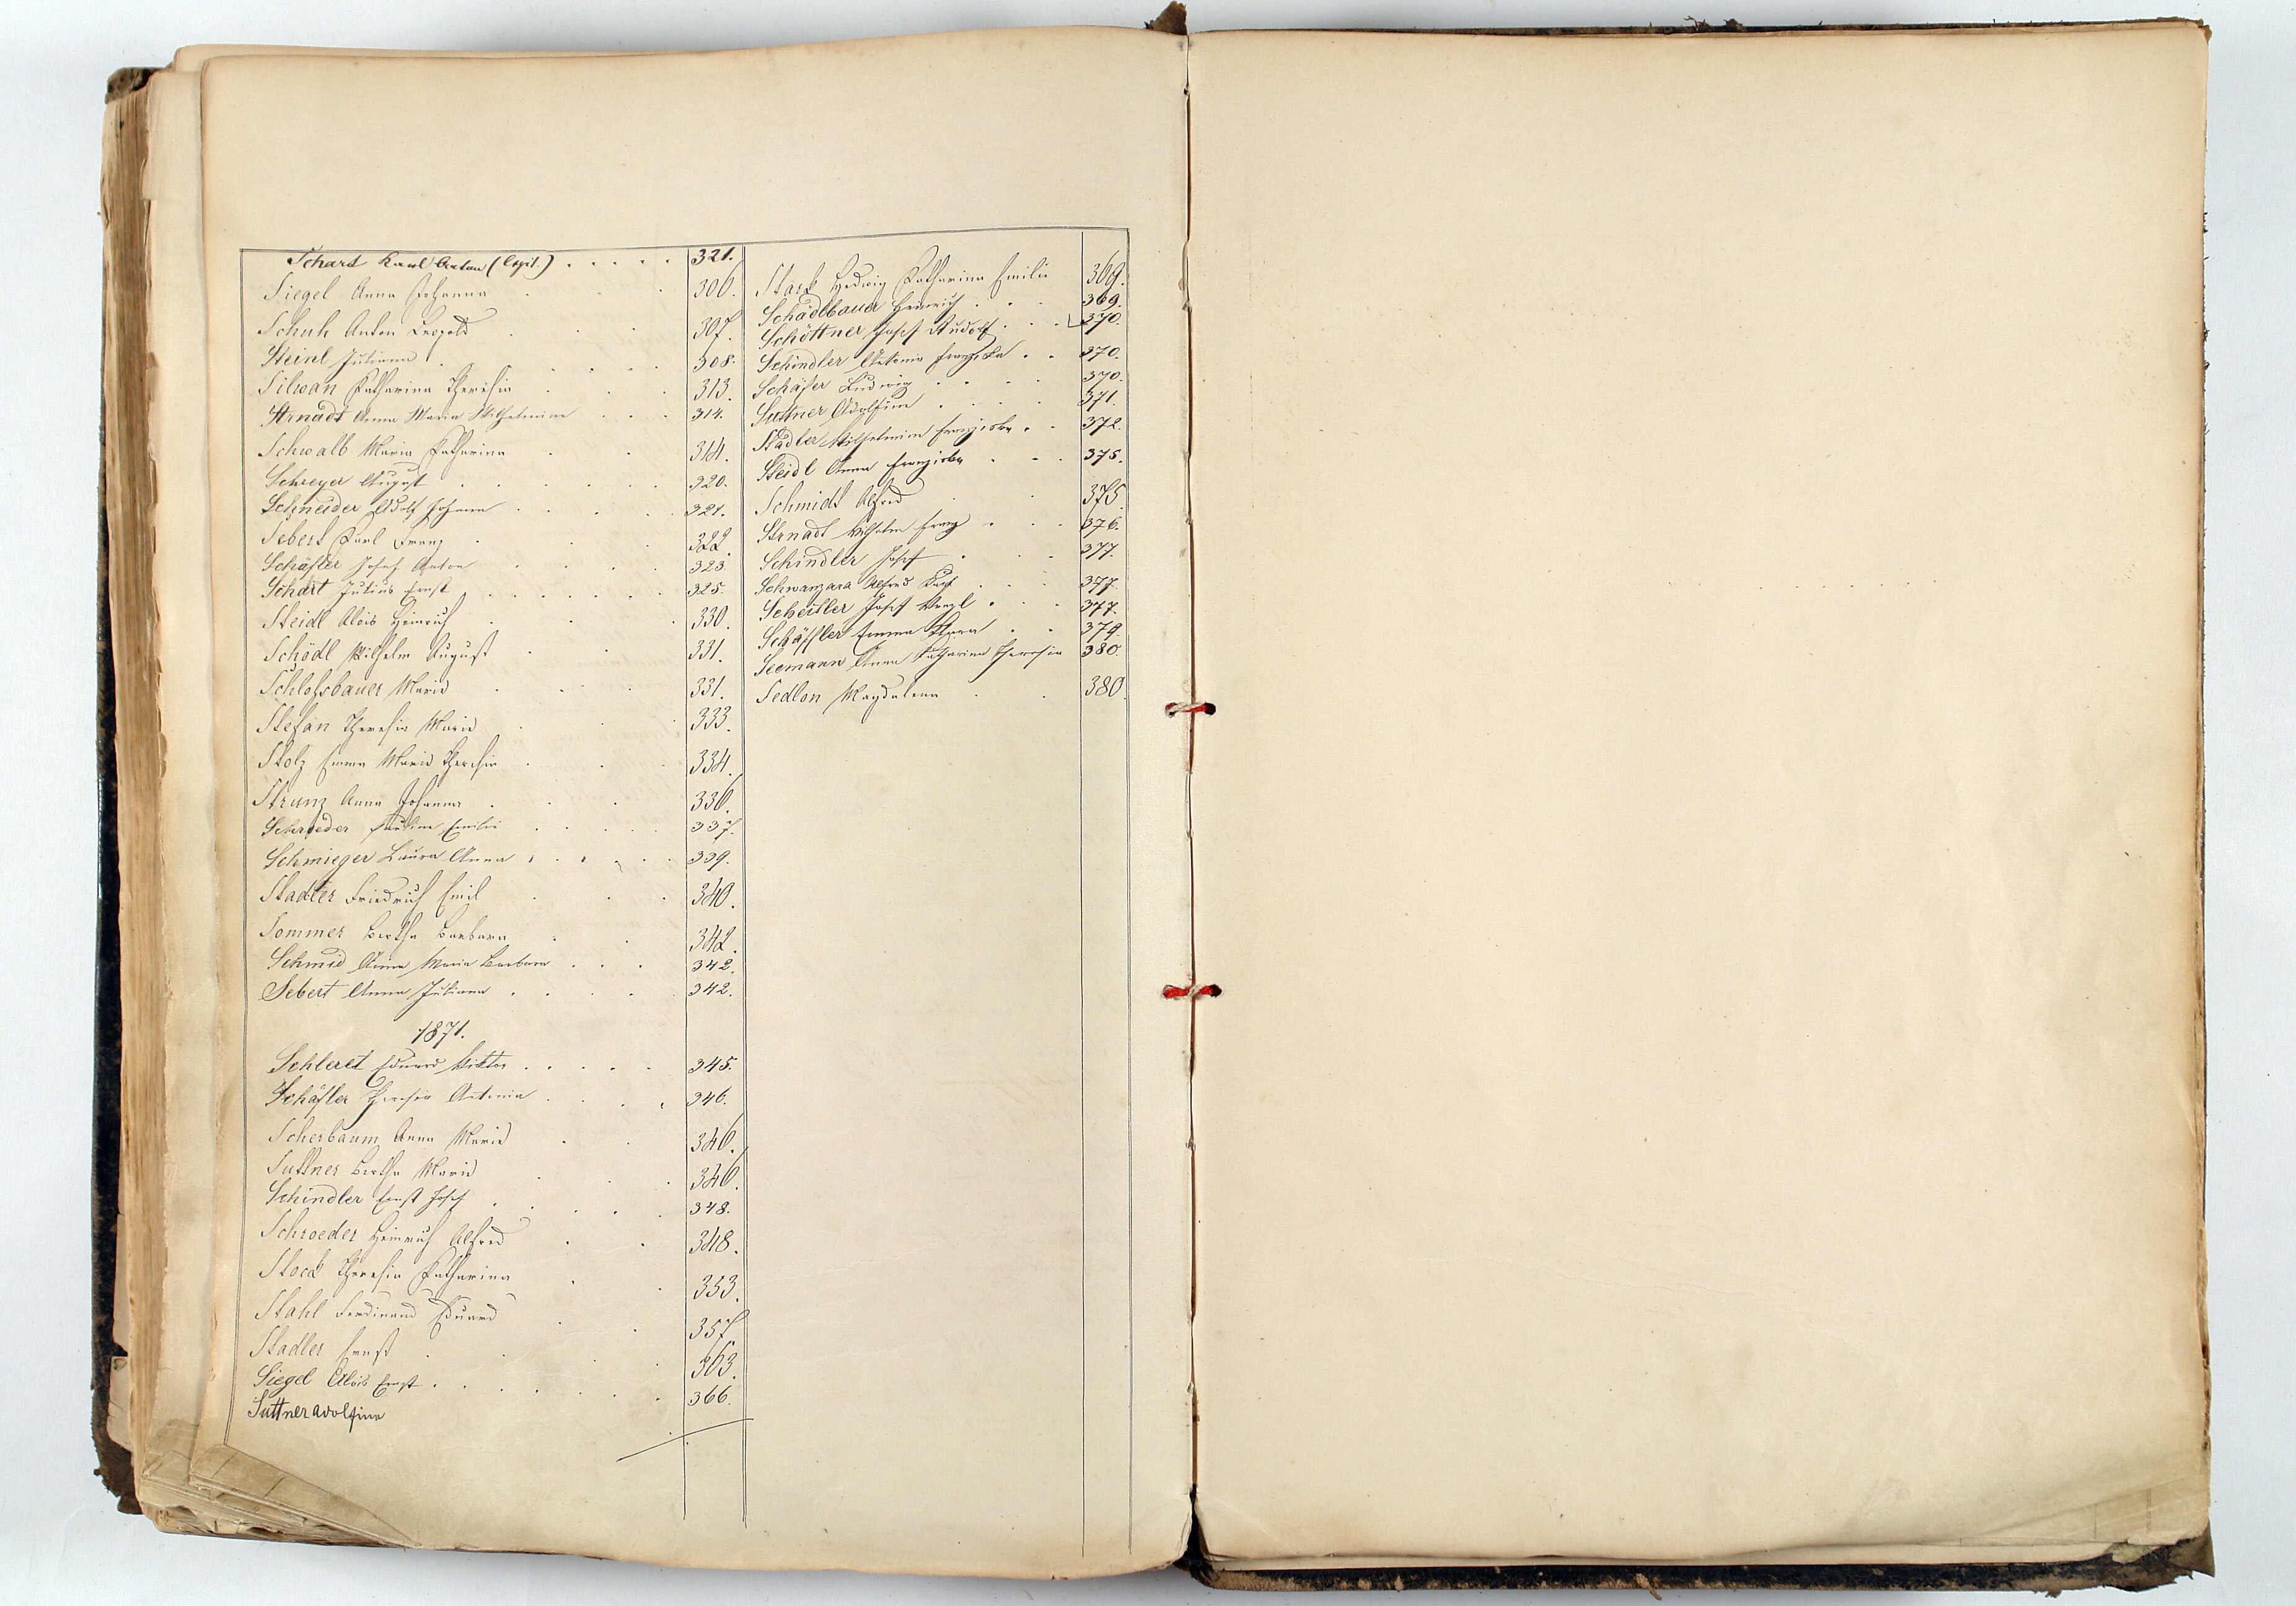 Schart Karl Anton (legit.) . . . . . 321.
Siegel Anna Johanna . . . 306.
Schuh Anton Leopold . . . 307.
Steinl Juliana . . . . . 308.
Silwan Katharina Theresia . . . 313.
Strnadt Anna Maria Wilhelmine . . . 314.
Schwalb Maria Katharina . . 314.
Schreyer August . . . . . . 320.
Schneider Adolf Johann . . . . . 321.
Sebert Karl Franz . . . 322.
Schäfler Josef Anton . . . . 323.
Schart Julius Ernst . . . . . . 325.
Steidl Alois Heinrich . . . 330.
Schödl Wilhelm August . . . 331.
Schloßbauer Maria . . . . 331.
Stefan Theresia Maria . . . 333.
Stolz Emma Maria Theresia . . . 334.
Strunz Anna Johanna . . . 336.
Schroeder Pauline Emilie . . . . . 337.
Schmieger Laura Anna . . . . . . 339.
Stadler Friedrich Emil . . . 340.
Sommer Bertha Barbara . . 342.
Schmid Anna Maria Barbara . . . 342.
Sebert Anna Juliana . . . . . 342.
1871.
Schleret Eduard Viktor . . . . . 345.
Schäfler Theresia Antonia . . . . 346.
Scherbaum Anna Maria . . 346.
Suttner Bertha Maria . . . 346.
Schindler Ernst Josef . . . . . 348.
Schroeder Heinrich Alfred . . 348.
Stock Theresia Katharina . . 353.
Stahl Ferdinand Eduard . . 357.
Stadler Ernst . . . . 363.
Siegel Alois Ernst . . . . . . . 366.
Suttner Adolfine
Stark Hedwig Katharina Emilie 369.
Schadlbauer Heinrich . . . 369.
Schöttner Josef Rudolf . . . 370.
Schindler Antonia Franziska . . 370.
Schäfer Ludwig . . . . 370.
Suttner Adolfine . . . . 371.
Stadler Wilhelmine Franziska . . 372.
Steidl Anna Franziska . . . 375.
Schmidt Alfred . . 375.
Strnadt Wilhelm Franz . . . 376.
Schindler Josef . . . . 377.
Schwanzara Alfred Karl . . . 377.
Scheitler Josef Wenzl . . . 377.
Schäffler Emma Anna . . 379.
Seemann Anna Katharina Theresia 380.
Sedlon Magdalena . . 380.